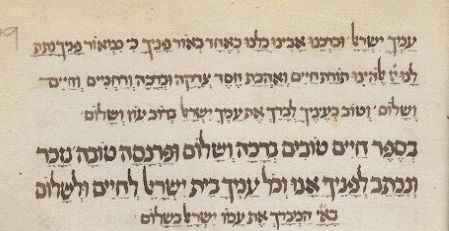 עמך ישראל וברכנו אבינו כלנו כאחד באור פניך כי מאור פניך נתת
לנו יי אלהינו תורת חיים ואהבת חסד צדקה וברכה ורחמים וחיים
ושלום וטוב בעיניך לברך את עמך ישראל ברוב עוז ושלום
בספר חיים טובים ברכה ושלום ופרנסה טובה נזכר
ונכתב לפניך אנו וכל עמך בית ישראל לחיים ולשלום
באי המברך את עמו ישראל בשלום